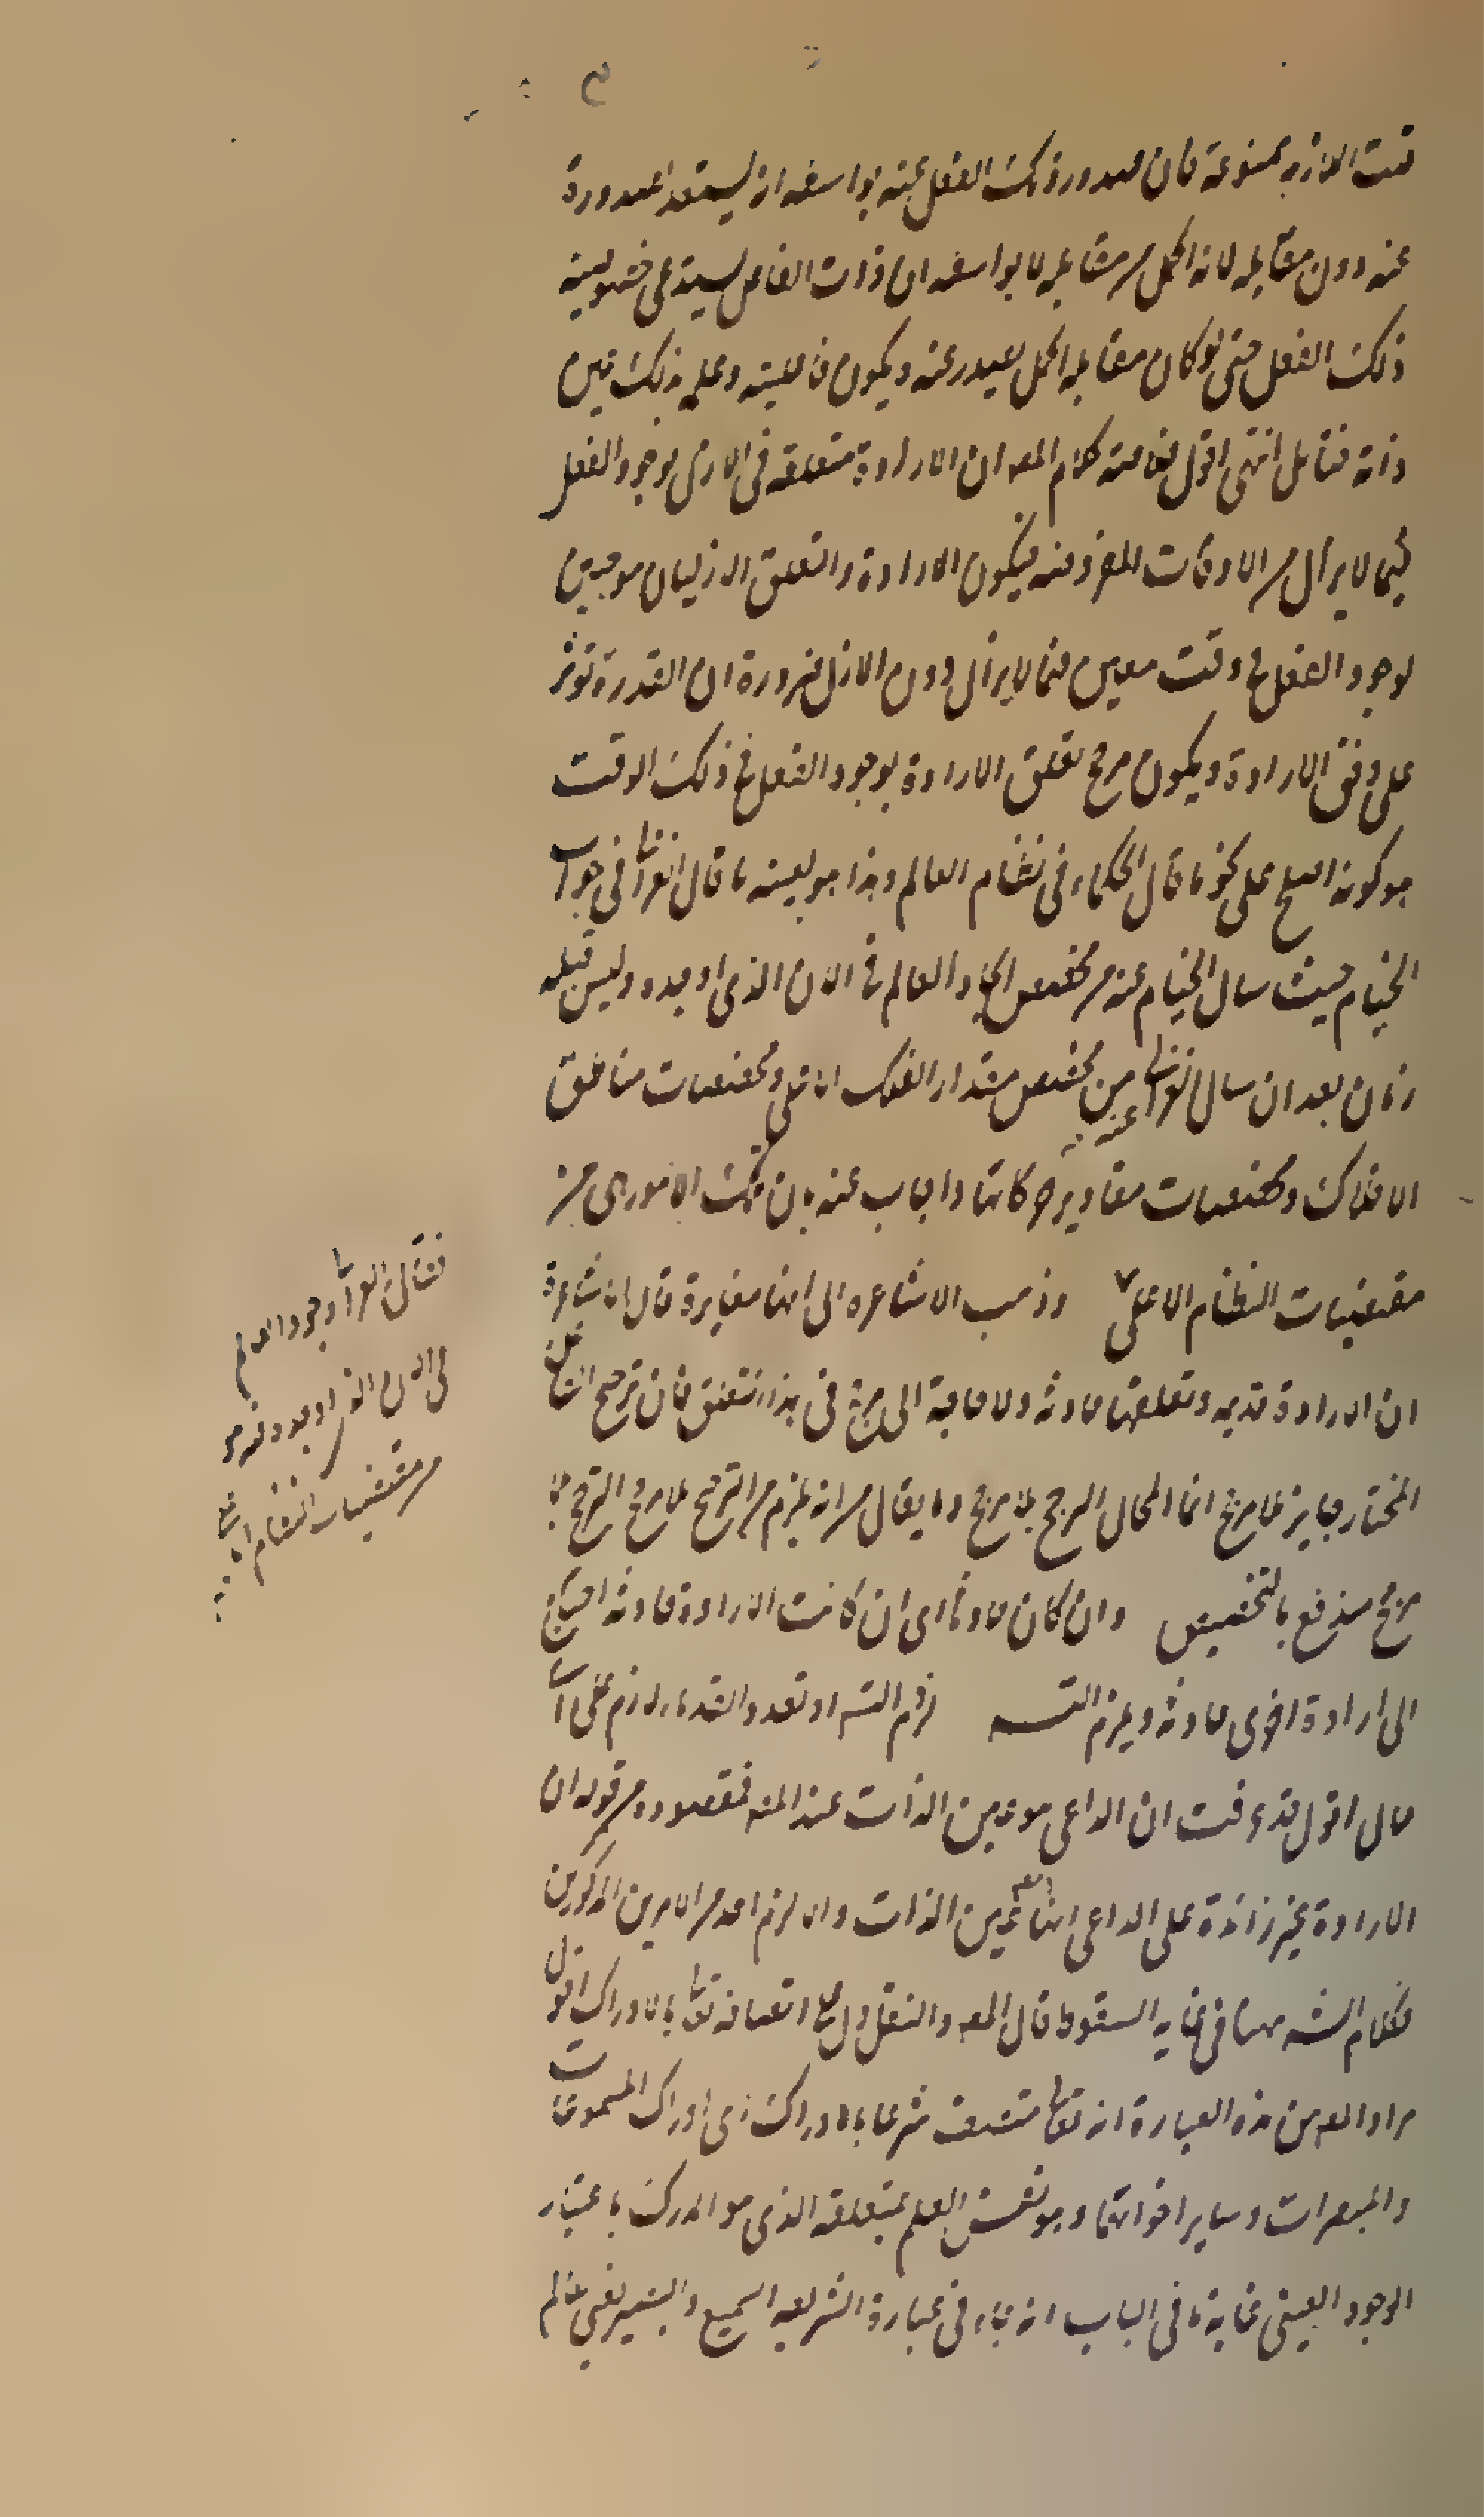 قلت الملازمة ممنوعة فان صدور ذلك الفعل عنه بواسطه انه يستعد لصدوره
عنه دون مقابله لانه اكمل من مقابله لا بواسطه ان ذات الفاعل يستدعى خصوصية
ذلك الفعل حتى لو كان مقابله اكمل يصدر عنه ويكون فاعليته وعلمه بذلك عين
ذاته فتامل انتهى اقول خلاصة كلام المص ان الارادة متعلقه فى الازل بوجود الفعل
فيما لا يزال من الاوقات المفروضه فيكون الارادة والتعلق الازليان موجبين
لوجود الفعل فى وقت معين فيما لا يزال دون الازل ضرورة ان القدرة تؤثر
على وفق الارادة ويكون مرجح تعلق الارادة بوجود الفعل فى ذلك الوقت
هو كونه اصلح على نحو ما قال الحكماء فى نظام العالم وهذا هو بعينه ما قال الغزالى فى جواب
الخيام حيث سال الخيام عنه من مخصص ايجاد العالم فى الان الذى اوجده وليس قبله
زمان بعد ان سال الغزالى عنه من مخصص مقدار الفلك الاعلى ومخصصات مناطق
الافلاك ومخصصات مقادير حركاتها واجاب عنه بان تلك الامور هى من
مقتضيات النظام الاعلى وذهب الاشاعره الى انها مغايرة قال الاشاعرة
ان الارادة قديمه وتعلقها حادثه ولا حاجة الى مرجح فى هذا التعلق فان ترجيح الفاعل
المختار جايز بلا مرجح انما المحال الترجح بلا مرجح وما يقال من انه يلزم من الترجيح بلا مرجح الترجح بلا
مرجح مندفع بالتخصيص وان كان حادثا اى ان كانت الارادة حادثه احتاج
الى ارادة اخرى حادثه ويلزم التسـ لزم التسـ او تعدد القدماء لازم على اى
حال اقول قد عرفت ان الداعى هو عين الذات عند المص فمقصوده من قوله ان
الارادة غير زائدة على الداعى انها عين الذات والا لزم احد من الامرين المذكورين
فكلام الشه ههنا فى غاية السقوط قال المص والنقل دل على اتصافه تعالى بالادراك اقول
مراد المص من هذه العبارة انه تعالى متصف شرعا بالادراك اى ادراك المسموعات
والمبصرات وساير اخواتها وهو نفس العلم بمتعلقه الذى هو المدرك باعتبار
الوجود العينى غاية ما فى الباب انه جاء فى عبارة الشريعه السميع والبصير يعنى عالم
فقال الغزالى وجود العالم
فى الان الذى اوجده فيه هو
من مقتضيات النظام الاعلى